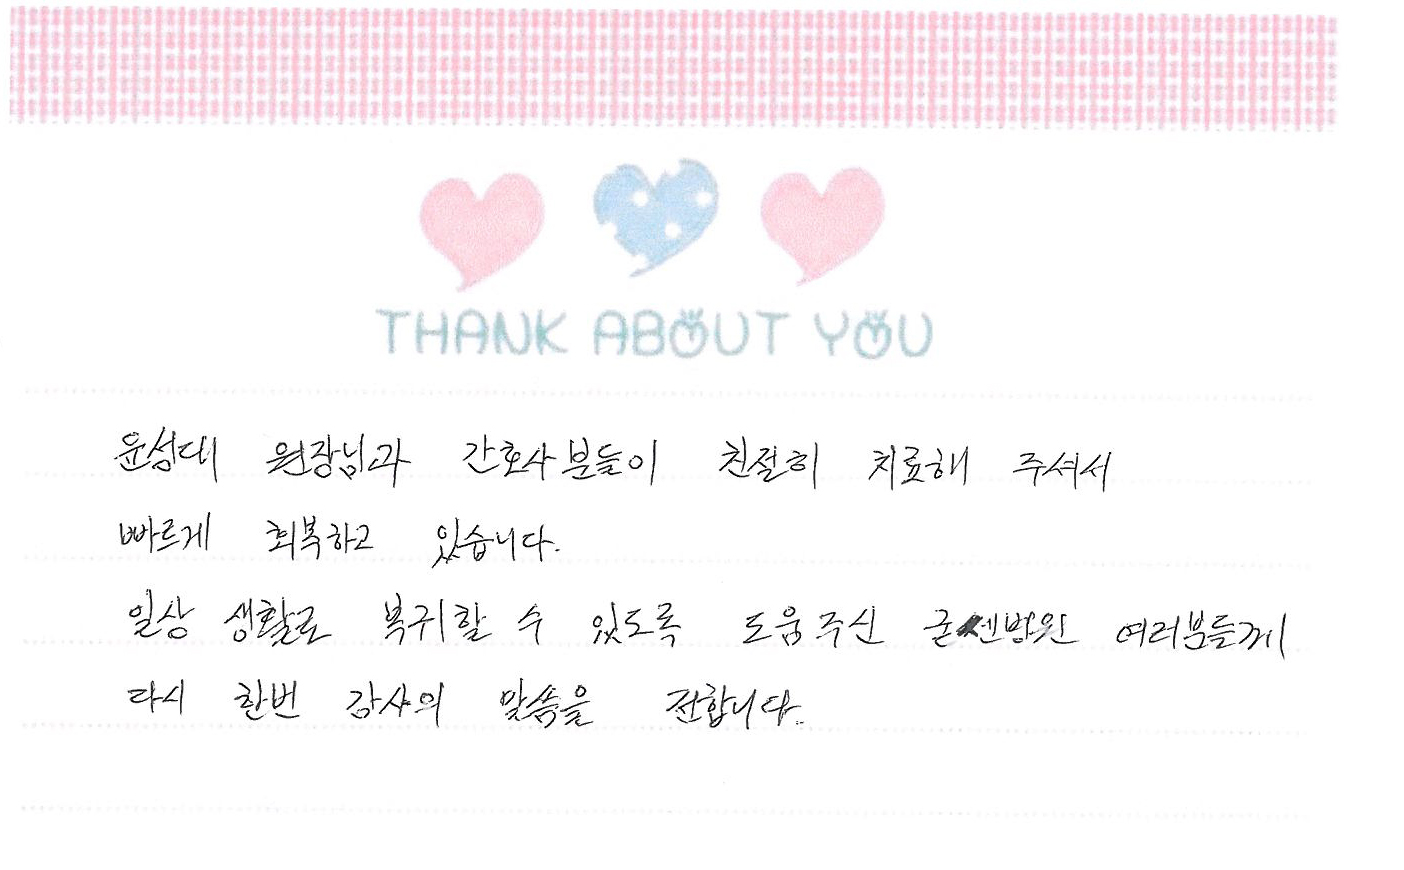 THANK ABOUT YOU
윤성대 원장님과 간호사분들이 친절히 치료해 주셔서
빠르게 회복하고 있습니다.
일상 생활로 복귀할 수 있도록 도움주신 굳센병원 여러분들께
다시 한번 감사의 말씀을 전합니다.